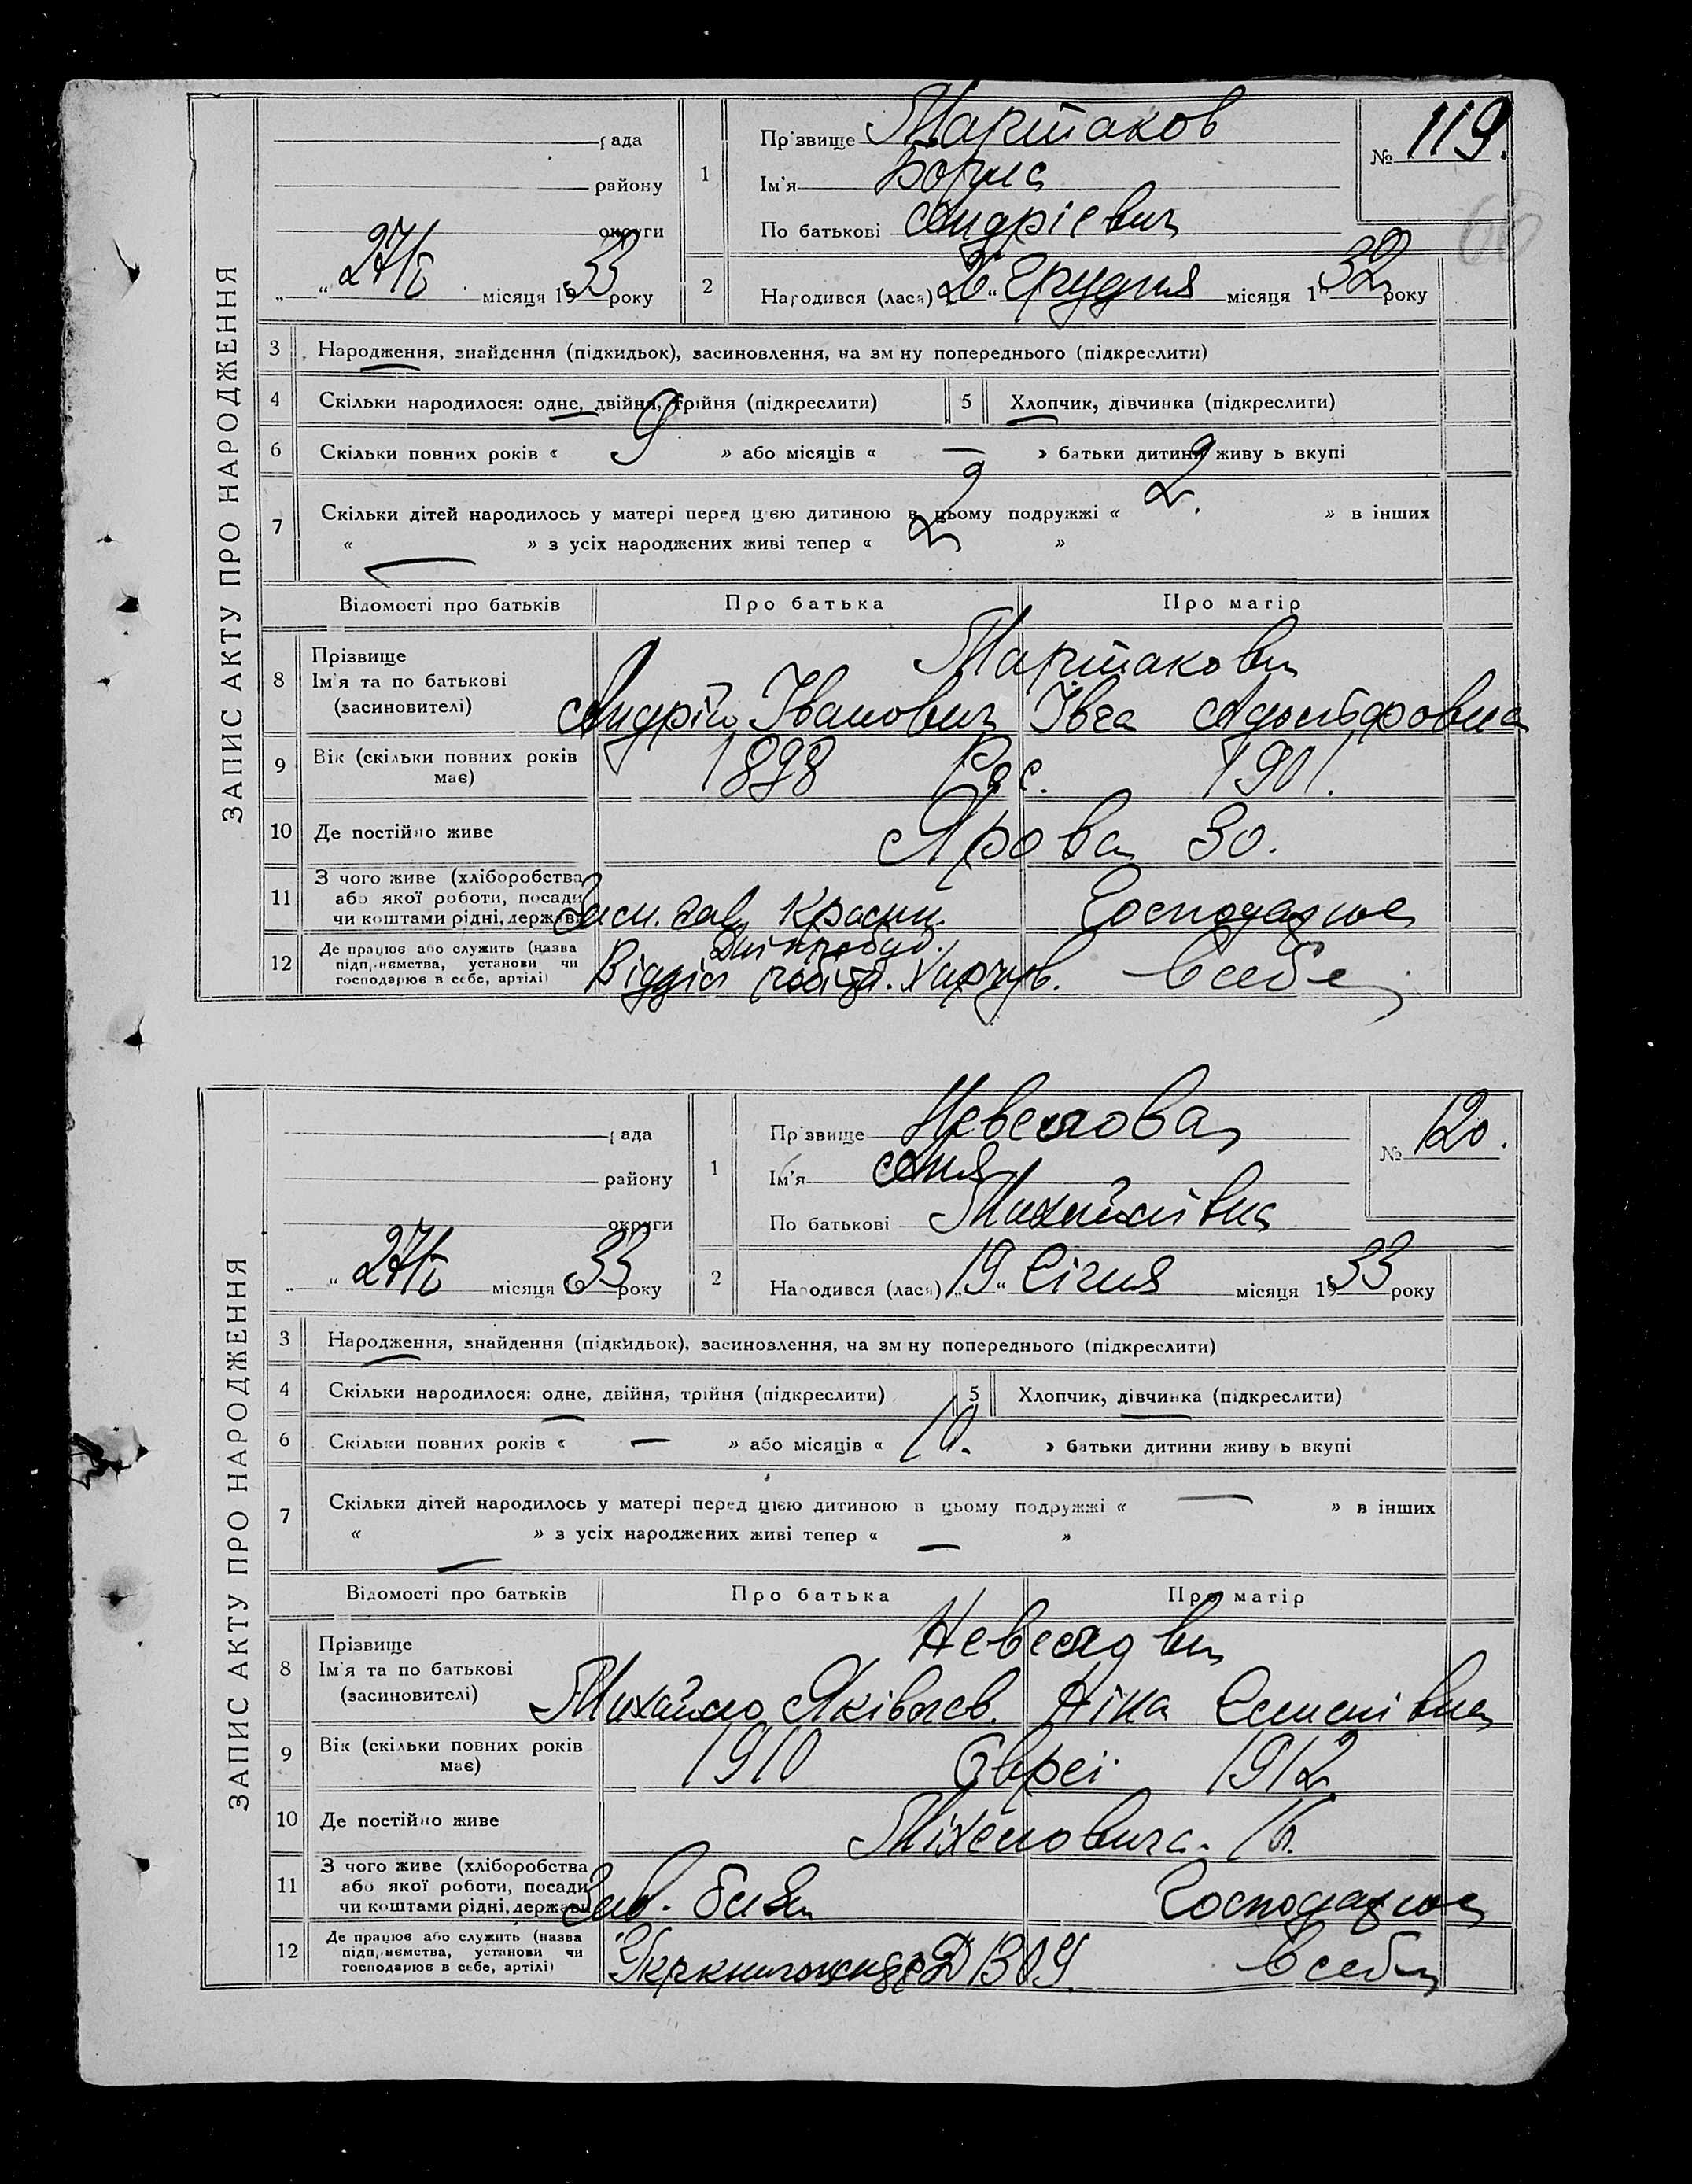 ЗАПИС АКТУ ПРО НАРОДЖЕННЯ
рада
району
округи
„ “ 27/I місяця 1933 року
1
Прізвище Мартаков
Ім'я Борис
По батькові Андрієвич
№ 119.
60
2
Народився (лася) 26 “ Грудня місяця 1932 року
3 Народження, знайдення (підкидьок), засиновлення, на зміну попереднього (підкреслити)
4 Скільки народилося: одне, двійня, трійня (підкреслити) 5 Хлопчик, дівчинка (підкреслити)
6 Скільки повних років « 9 » або місяців « — » батьки дитини живуть вкупі
7 Скільки дітей народилось у матері перед цією дитиною в цьому подружжі « 2. » в інших
« — » з усіх народжених живі тепер « 2 »
Відомості про батьків Про батька Про матір
8 Прізвище
Ім'я та по батькові
(засиновителі)
Мартакови
Андрій Іванович Івга
9 Вік (скільки повних років має) 1898 Рос. 1901.
10 Де постійно живе Ярова 30.
11 З чого живе (хліборобства або якої роботи, посади чи коштами рідні, держави) Засл. зав. Господарює
12 Де працює або служить (назва підприємства, установи чи господарює в себе, артілі) Дніпробуд. Відділ робітн. Харчув. в себе
ЗАПИС АКТУ ПРО НАРОДЖЕННЯ
рада
району
округи
„ “ 27/I місяця 1933 року
1
Прізвище Невелова
Ім'я Аня
По батькові Михайлівна
№ 120.
2
Народився (лася) „ 19 “ Січня місяця 1933 року
3 Народження, знайдення (підкидьок), засиновлення, на зміну попереднього (підкреслити)
4 Скільки народилося: одне, двійня, трійня (підкреслити) 5 Хлопчик, дівчинка (підкреслити)
6 Скільки повних років « — » або місяців « 10. » батьки дитини живуть вкупі
7 Скільки дітей народилось у матері перед цією дитиною в цьому подружжі « — » в інших
« — » з усіх народжених живі тепер « — »
Відомості про батьків Про батька Про матір
8 Прізвище
Ім'я та по батькові
(засиновителі)
Невелови
Михайло Яківлев. Ніна Семенівна
9 Вік (скільки повних років має) 1910 Євреї 1912
10 Де постійно живе Міхеловича.
11 З чого живе (хліборобства або якої роботи, посади чи коштами рідні, держави) Зав. Господарює
12 Де працює або служить (назва підприємства, установи чи господарює в себе, артілі) ДВОУ. в себе